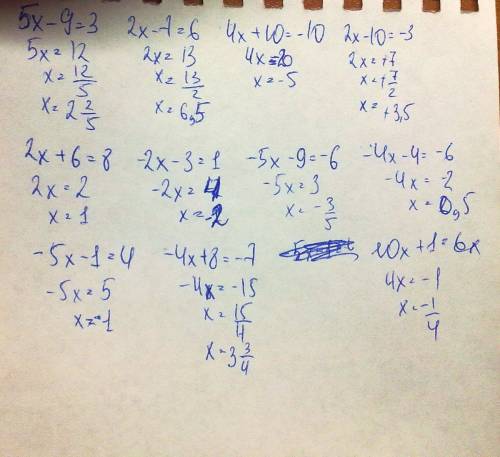 5x-9=3
5x=12
x=12/5
x=2 2/5
2x-7=6
2x=13
x=13/2
x=6,5
4x+10=-10
4x=-20
x=-5
2x-10=-3
2x=+7
x=+7/2
x=+3,5
2x+6=8
2x=2
x=1
-2x-3=1
-2x=4
x=-2
-5x-9=-6
-5x=3
x=-3/5
-4x-4=-6
-4x=-2
x=0,5
-5x-1=4
-5x=5
x=-1
-4x+8=-7
-4x=-15
x=15/4
x=3 3/4
10x+1=6x
4x=-1
x=-1/4